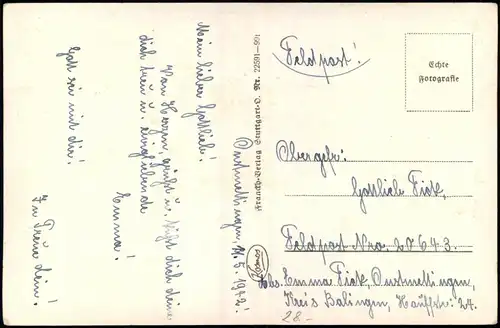 Onstmettingen, 11.5.1942!
Mein lieber Gottlieb!
Von Herzen grüßt u. küßt dich deine
dich treu u. liebende
Emma!
Gott sei mit dir!
In Treue Dein!
Franckh-Verlag Stuttgart-O. Nr. 22591-901
Kosmos
Feldpost!
Echte
Fotografie
Obergefr:
Gottlieb Fick,
Feldpost Nro. 20643.
Abs. Emma Fick, Onstmettingen,
Kreis Balingen, Hauffstr: 24.
28.-